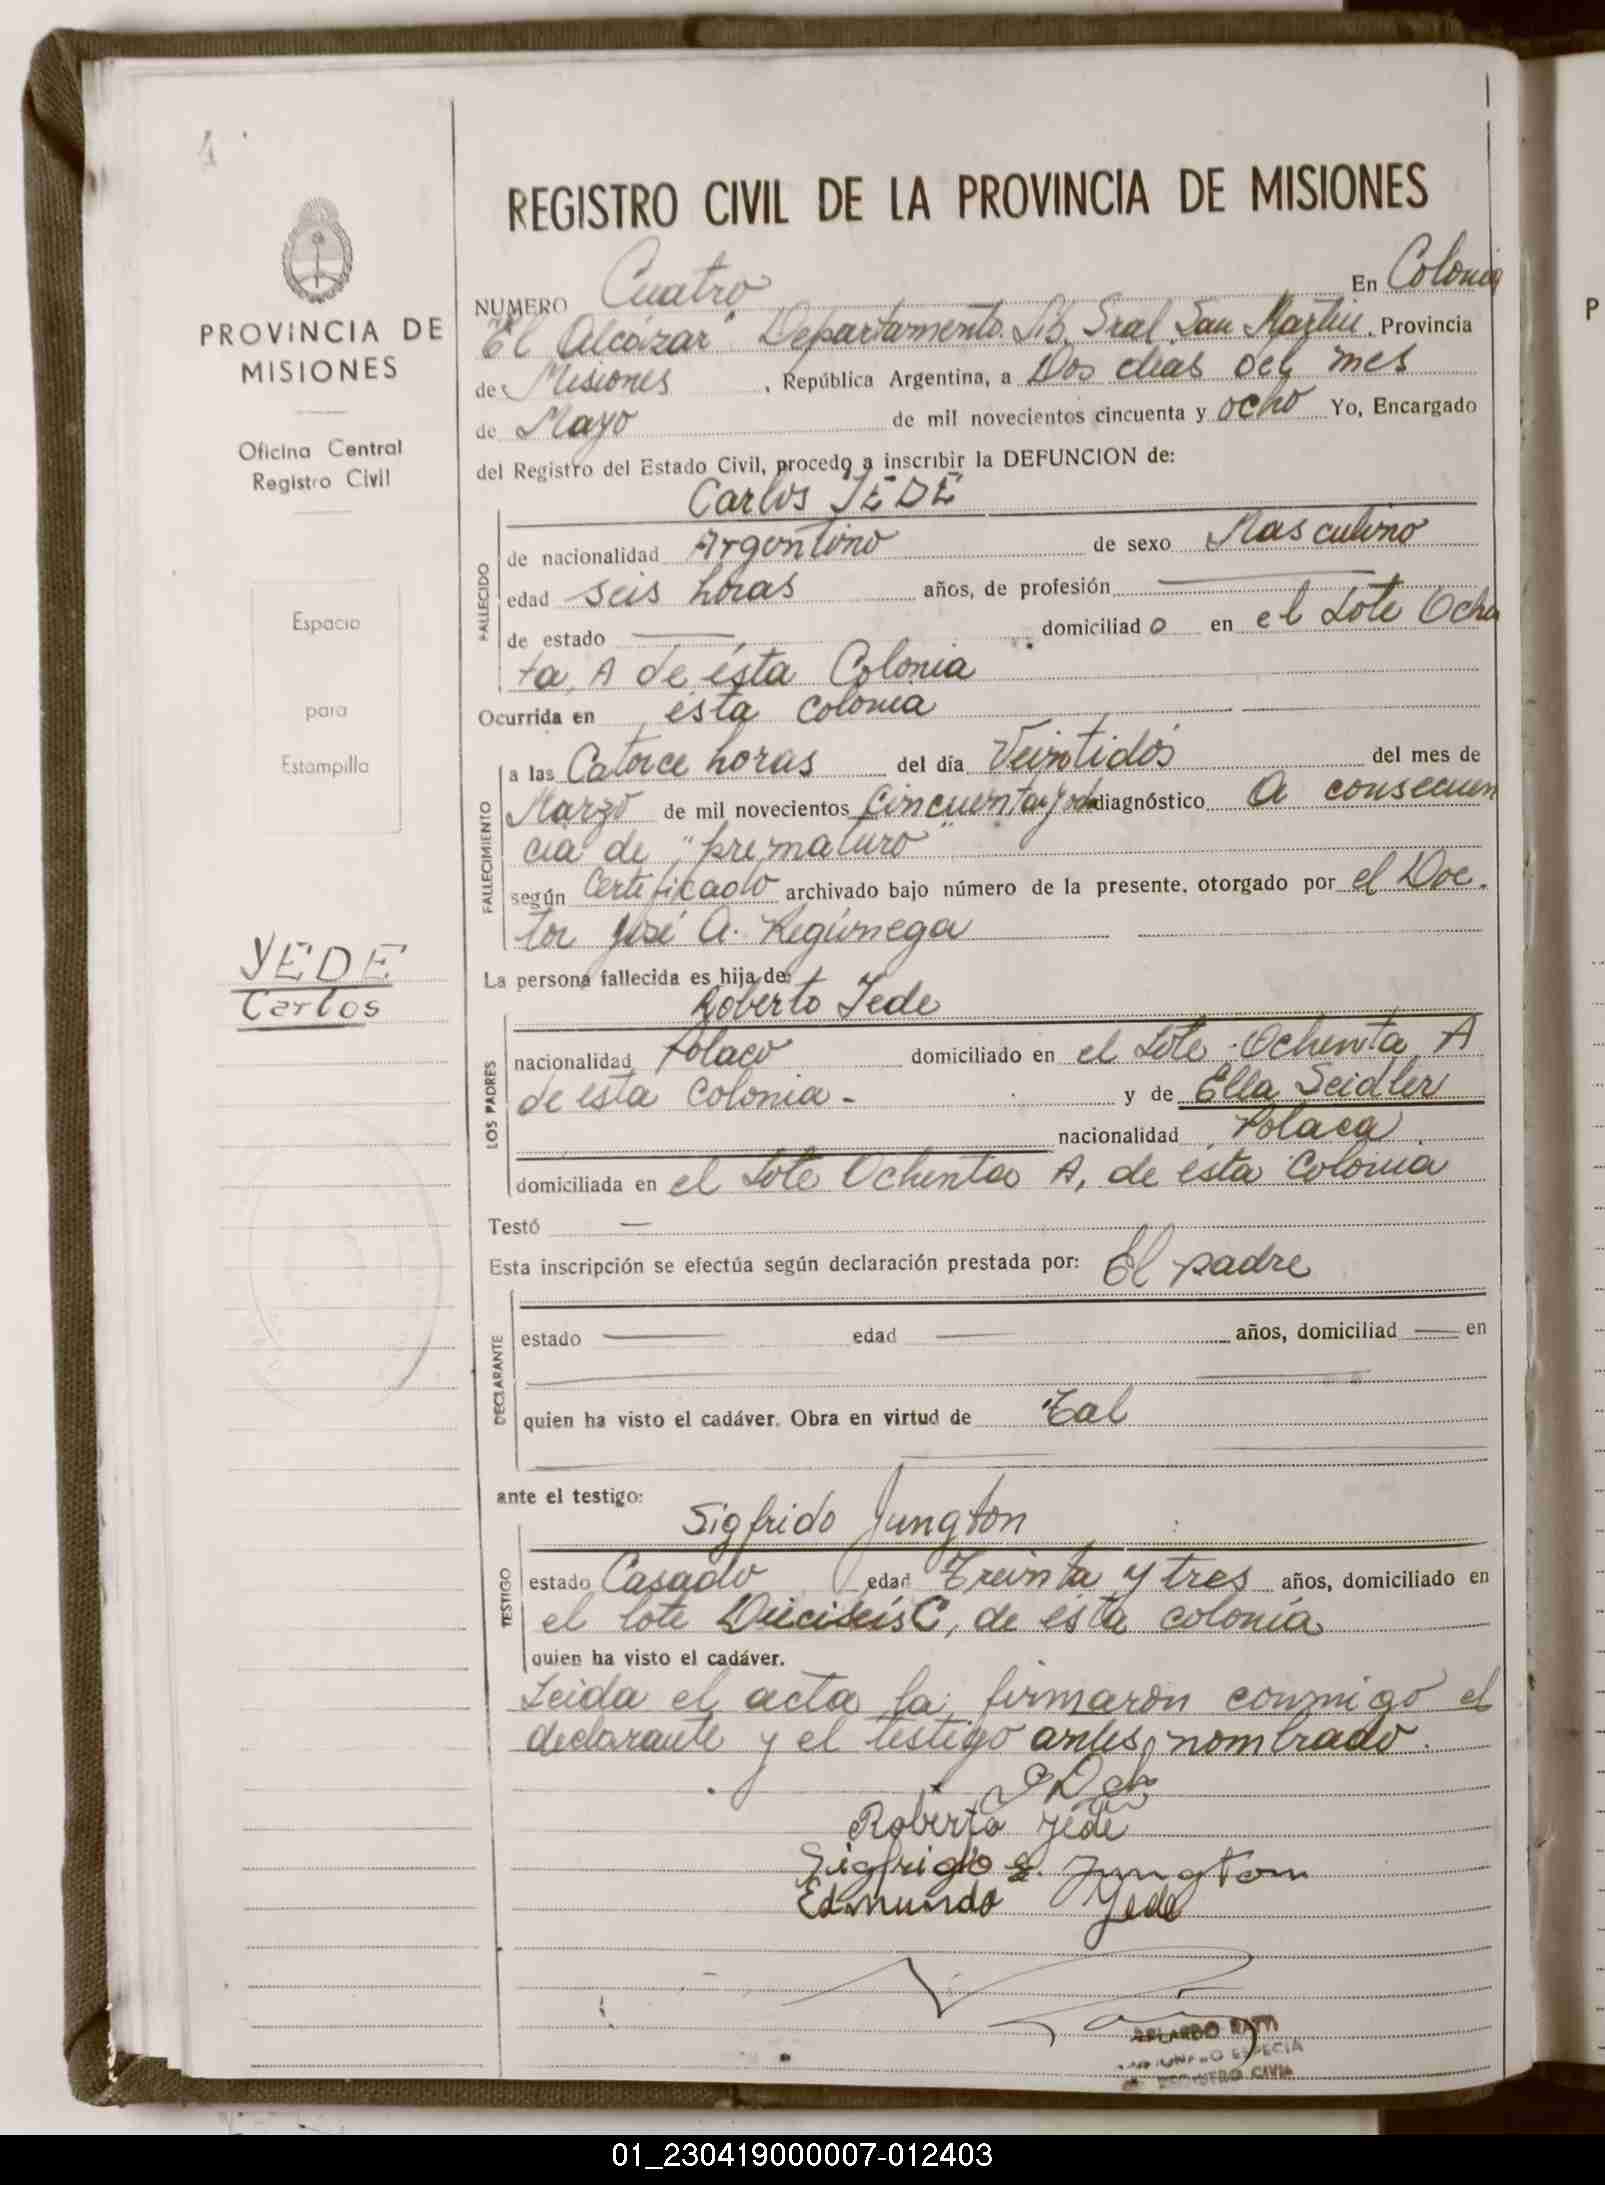 4
PROVINCIA DE
MISIONES
Oficina Central
Registro Civil
Espacio
para
Estampilla
YEDE
Carlos
REGISTRO CIVIL DE LA PROVINCIA DE MISIONES
NUMERO Cuatro En Colonia
"El Alcázar" Departamento Lib. Gral. San Martin, Provincia
de Misiones, República Argentina, a Dos dias del mes
de Mayo de mil novecientos cincuenta y ocho Yo, Encargado
del Registro del Estado Civil, procedo a inscribir la DEFUNCION de:
Carlos JEDE
FALLECIDO
de nacionalidad Argentino de sexo Masculino
edad seis horas años, de profesión
de estado domiciliado en el Lote Ochen
ta, A de ésta Colonia
Ocurrida en ésta colonia
FALLECIMIENTO
a las Catorce horas del día Veintidós del mes de
Marzo de mil novecientos Cincuenta y ocho diagnóstico A consecuen
cia de "prematuro"
según Certificado archivado bajo número de la presente, otorgado por el Doc.
tor José A.
La persona fallecida es hija de:
Roberto Jede
LOS PADRES
nacionalidad Polaco domiciliado en el Lote Ochenta A
de esta colonia - y de Ella Seidler
nacionalidad Polaca
domiciliada en el Lote Ochenta A, de ésta Colonia
Testó —
Esta inscripción se efectúa según declaración prestada por: El padre
DECLARANTE
estado edad años, domiciliad en
quien ha visto el cadáver. Obra en virtud de Tal
ante el testigo:
Sigfrido Jungton
TESTIGO
estado Casado edad Treinta y tres años, domiciliado en
el lote Dieciseis C, de ésta colonia
quien ha visto el cadáver.
Leida el acta la firmaron conmigo el
declarante y el testigo antes nombrado.
Roberto Jede
Sigfrido E. Jungton
Edmundo Jede
REGISTRO CIVIL
P
01_230419000007-012403